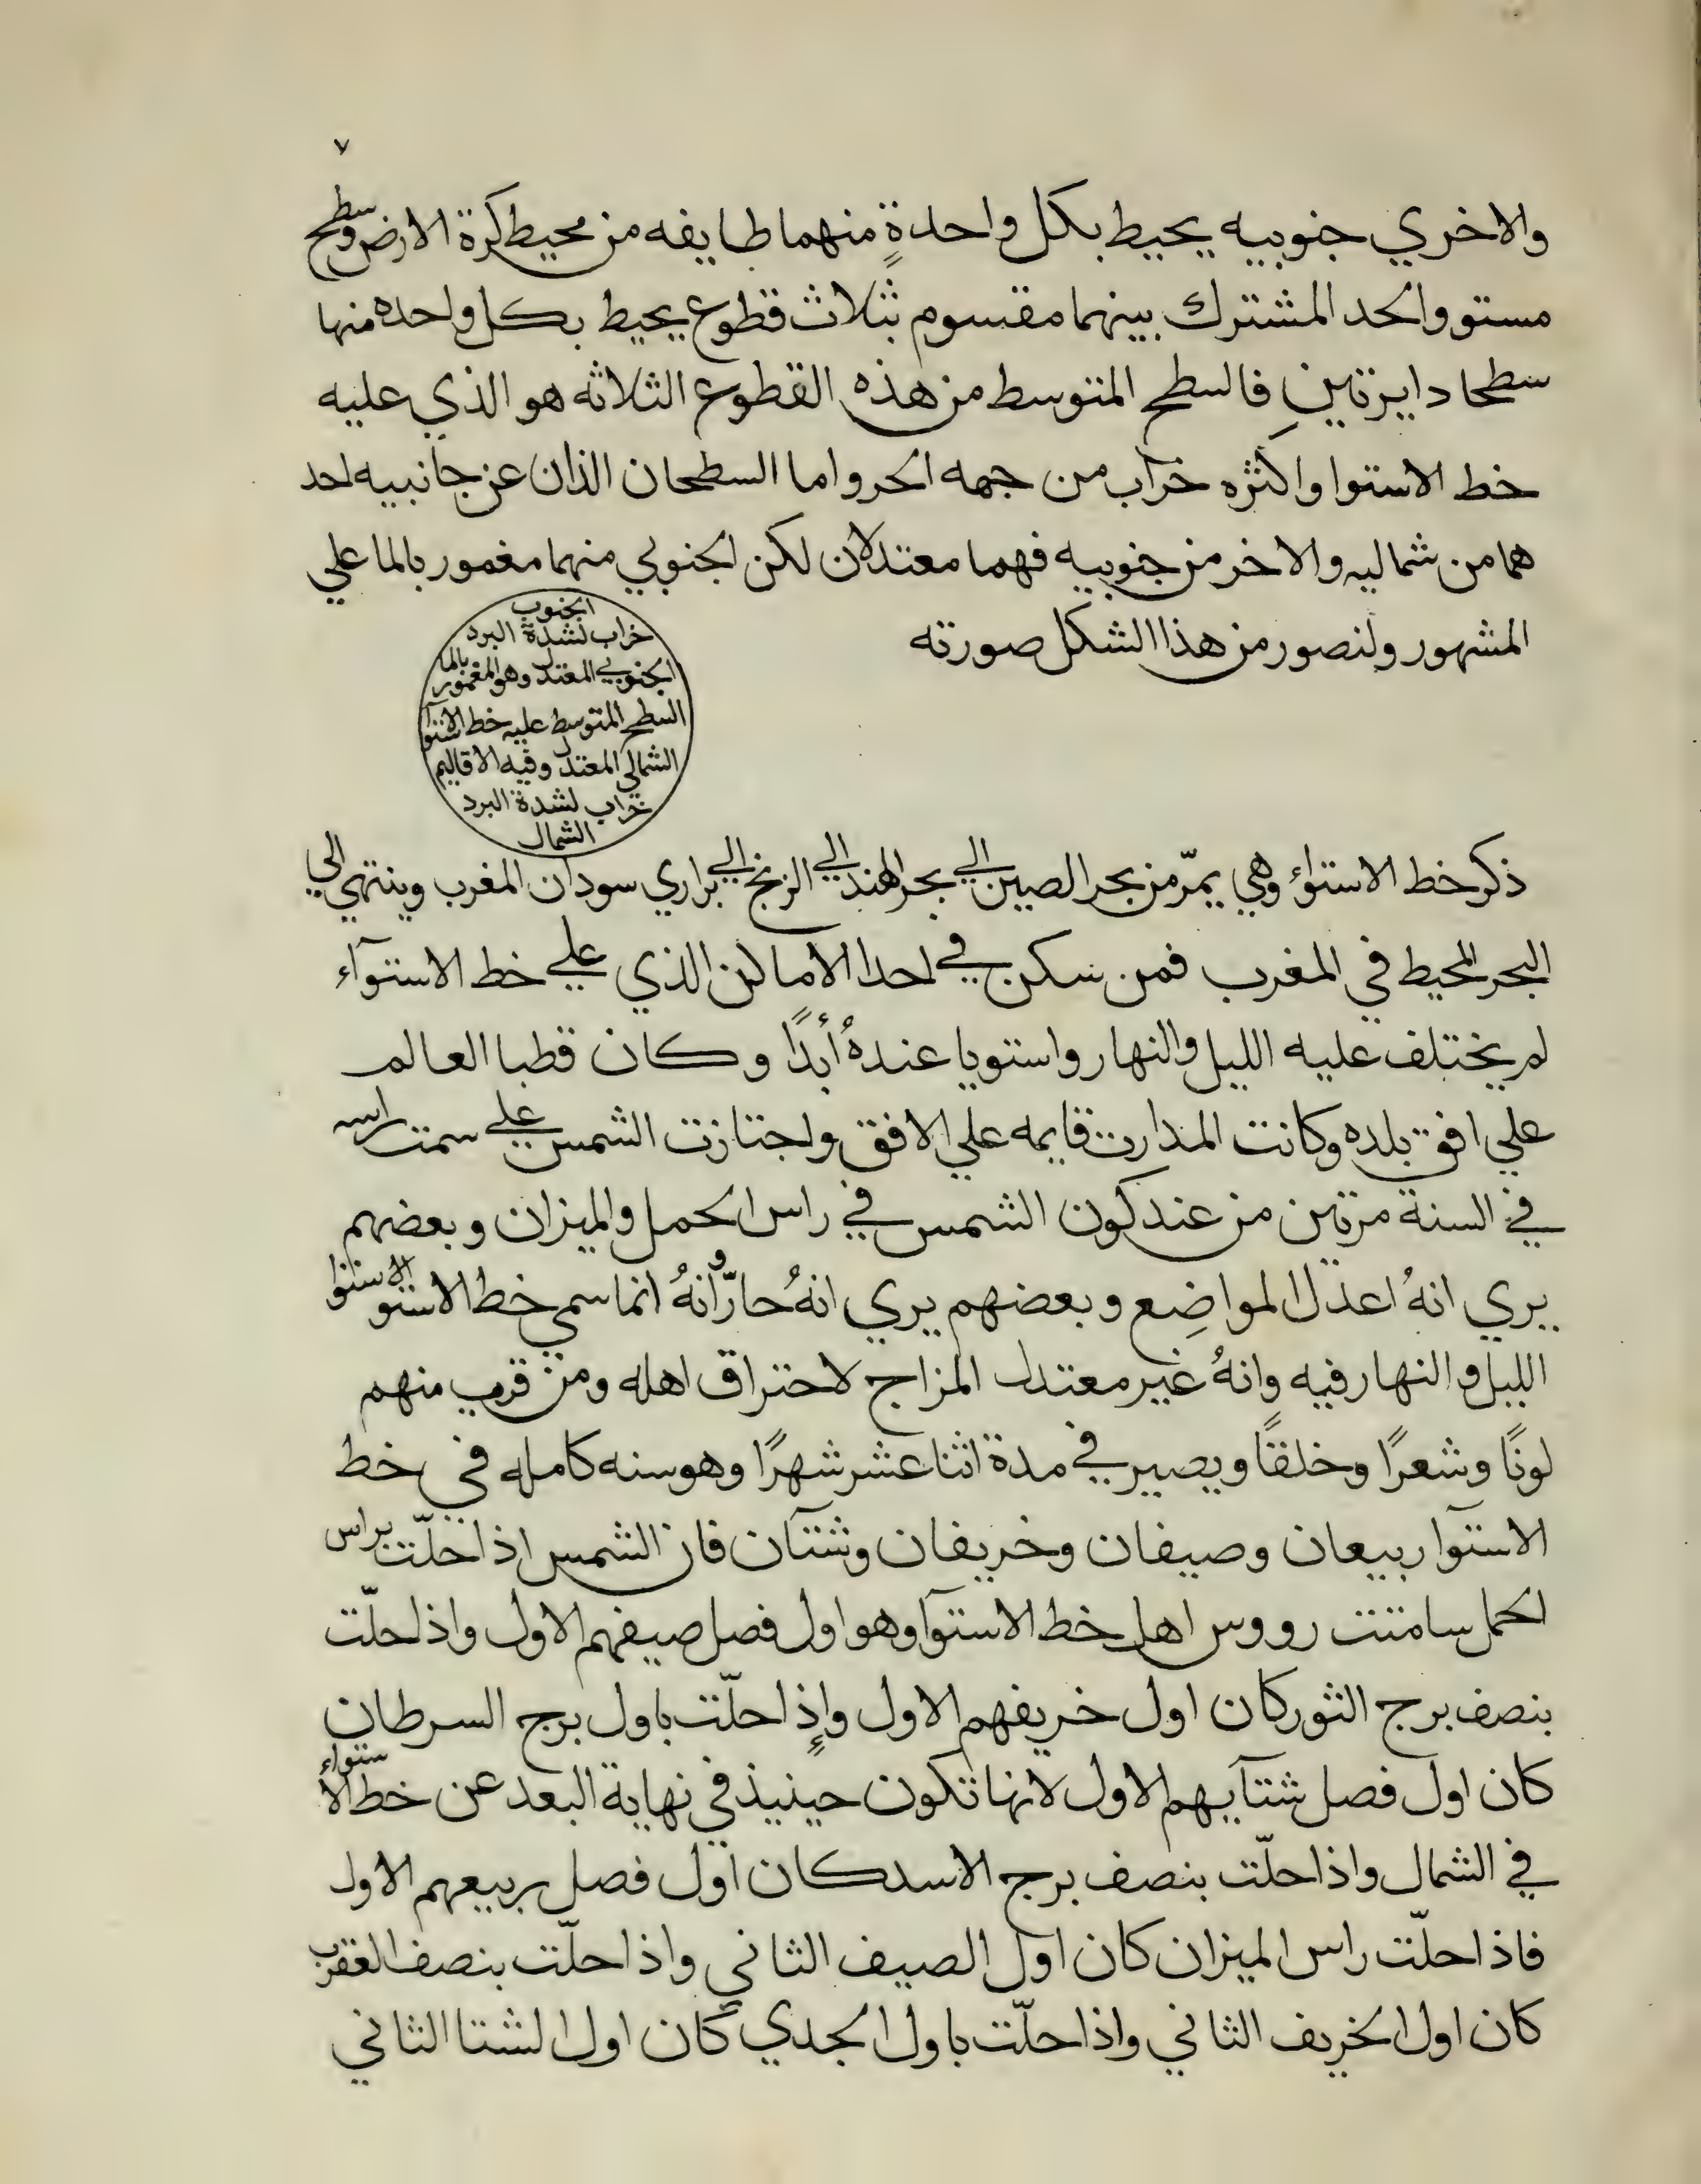 ٧
والاخري جنوبيه يحيط بكل واحدةٍ منهما طايفه من محيط كرة الارض وسطح
مستو والحد المشترك بينهما مقسوم بثلاث قطوع يحيط بكل واحده منها
سطحا دايرتينِ فالسطح المتوسط من هذه القطوع الثلاثه هو الذي عليه
خط الاستوا واكثره خراب من جهه الحر واما السطحان الذان عن جانبيه احد
هما من شماليه والاخر من جنوبيه فهما معتدلان لكن الجنوبي منهما مغمور بالما علي
المشهور ولنصور من هذا الشكل صورته
الجنوب
خراب لشدة البرد
الجنوبي المعتدل وهو المغمور بالما
السطح المتوسط عليه خط الاستوآ
الشمالي المعتدل وفيه الاقاليم
خراب لشدة البرد
الشمال
ذكر خط الاستوآء وهي يمرّ من بحر الصين الي بحر الهند الي الزنج الي براري سودان المغرب وينتهي الي
البحر المحيط في المغرب فمن سكن في احدا الاماكن الذي علي خط الاستوآء
لم يختلف عليه الليل والنهار واستويا عندهُ أبدًا وكان قطبا العالم
علي افق بلده وكانت المدارت قايمه علي الافق واجتازت الشمس علي سمت راسه
في السنة مرتين من عند كون الشمس في راس الحمل والميزان وبعضهم
يري انهُ اعدل المواضِع وبعضهم يري انهُ حارّ وأنهُ انما سمي خط الاستوا لاستوا
الليل والنهار فيه وانهُ غير معتدل المزاج لاحتراق اهله ومن قرب منهم
لونًا وشعرًا وخلقًا ويصير في مدة اثنا عشر شهرًا وهو سنه كامله في خط
الاستوآ ربيعان وصيفان وخريفان وشتآن فان الشمس اذا حلّت براس
الحمل سامتت رووس اهل خط الاستوآ وهو اول فصل صيفهم الاول واذا حلّت
بنصف برج الثور كان اول خريفهم الاول وإذا حلّت باول برج السرطان
كان اول فصل شتآيهم الاول لانها تكون حينيذ في نهاية البعد عن خط الاستوآء
في الشمال واذا حلّت بنصف برج الاسد كان اول فصل ربيعهم الاول
فاذا حلّت راس الميزان كان اول الصيف الثاني واذا حلّت بنصف العقرب
كان اول الخريف الثاني واذا حلّت باول الجدي كان اول الشتا الثاني